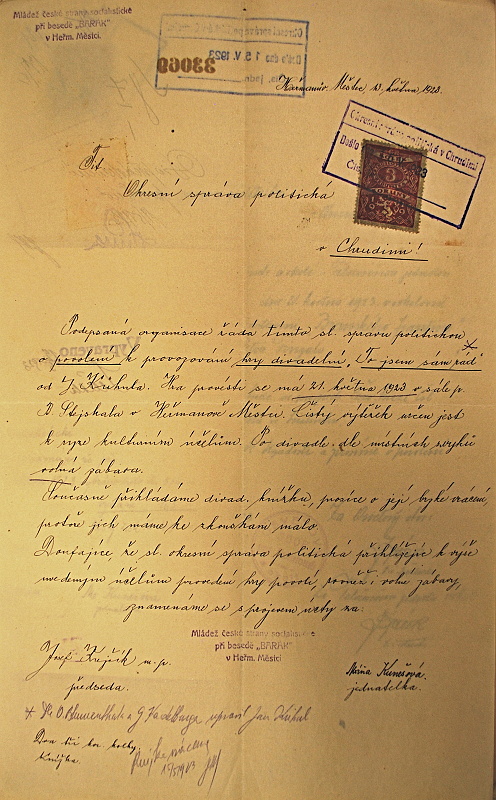 Mládež české strany socialistické
při besedě „BARÁK"
v Heřm. Městci.
Okresní správa politická
Došlo dne 1 5. V. 1923
33069
Heřmanův Městec 13. května 1923.
Okresní správa politická v Chrudimi
Došlo
3
Tit.
Okresní správa politická
v Chrudimi!
Podepsaná organisace žádá tímto sl. správu politickou
o povolení k provozování hry divadelní „To jsem sám rád"
od J. Skřuhla. Hra provésti se má 21. května 1923 v sále p.
D. Stejskala v Heřmanově Městci. Čistý výtěžek určen jest
k ryze kulturním účelům. Po divadle dle místních zvyků
volná zábava.
Současně přikládáme divad. knížku, prosíce o její brzké vrácení,
protože jich máme ke zkouškám málo.
Doufajíce že sl. okresní správa politická přihlížejíc k výše
uvedeným účelům provedení hry povolí, rovněž i volné zábavy,
znamenáme se s projevem úcty za
Mládež české strany socialistické
při besedě „BARÁK"
v Heřm. Městci
Josef Krejčík m. p.
předseda.
Máňa Kunešová
jednatelka.
+ Dle O. Blumenthala a G. Kadelburga upravil Jan Skřuhl
Knížka.
Knížku vrácenu